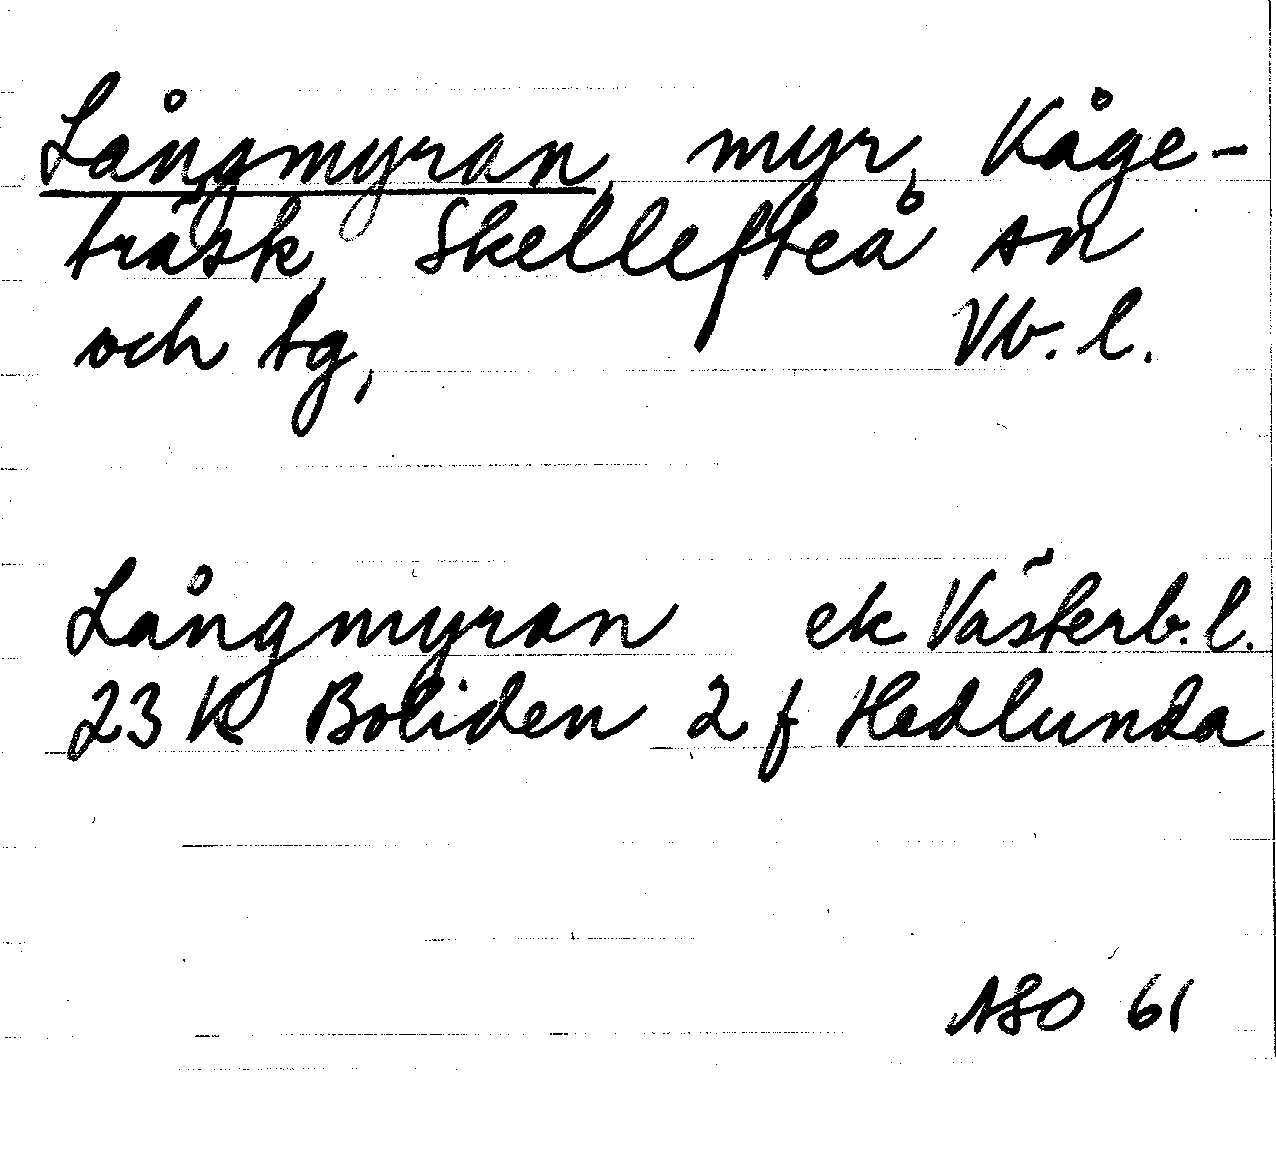 Långmyran, myr, Kåge-
träsk, Skellefteå sn
och tg, Vb. l.
Långmyran ek Västerb. l.
23 K Boliden 2 f Hedlunda
ASO 61